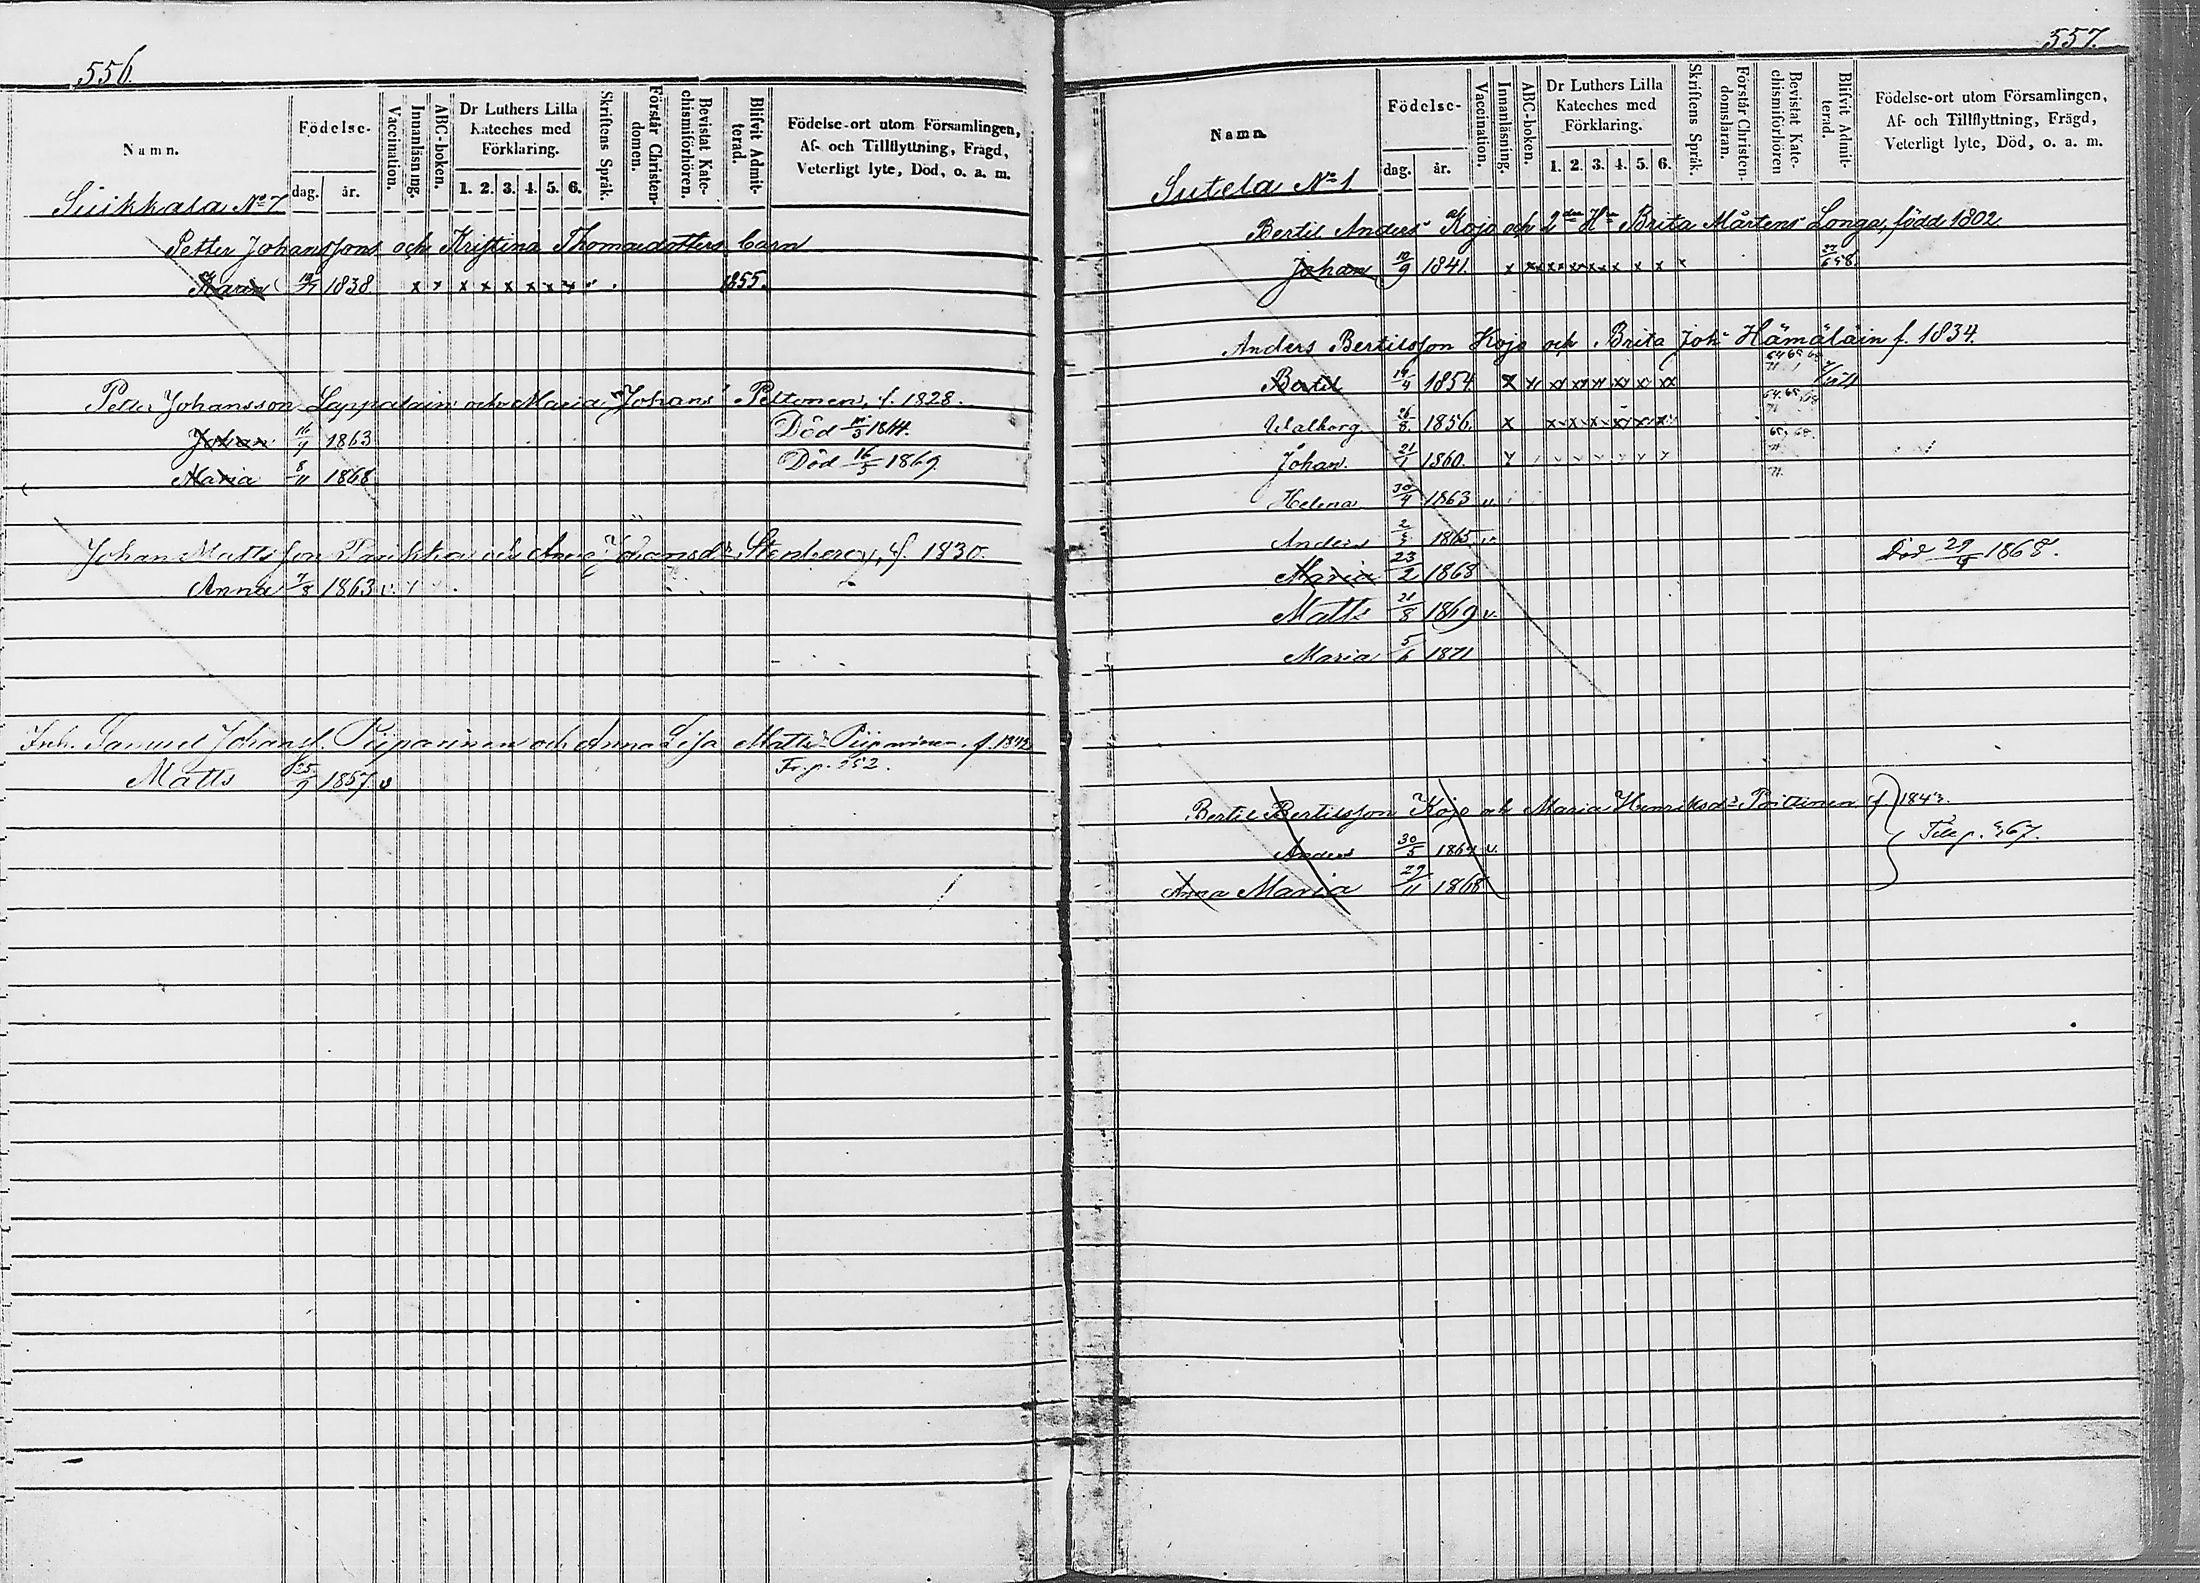 556.
Namn.
Födelse-
dag. år.
Vaccination.
Innanläsning.
ABC-boken.
Dr Luthers Lilla
Kateches med
Förklaring.
1. 2. 3. 4. 5. 6.
Skriftens Språk.
Förstår Christen-
domen.
Bevistat Kate-
chismiförhören.
Blifvit Admit-
terad.
Födelse-ort utom Församlingen,
Af- och Tillflyttning, Frägd,
Veterligt lyte, Död, o. a. m.
Suikkala No 7
Petter Johanssons och Kristina Thomasdotters barn
Karin 1838. x x x x x x x x 1855.
Petter Johansson Lappalain och Maria Johans Peltonen, f. 1828.
Johan 1863 Död
Maria 8/11 1868 Död 16/5 1869
Johan Mattsson Parikka och Anna Johansdr Stenberg, f. 1830.
Anna 7/8 1863 v.
Inh. Samuel Johans. Piiparinen och Anna Lisa Matts Piiparinen f. 1842
Matts 25/9 1857. v Fr. p.
557.
Namn.
Födelse-
dag. år.
Vaccination.
Innanläsning.
ABC-boken.
Dr Luthers Lilla
Kateches med
Förklaring.
1. 2. 3. 4. 5. 6.
Skriftens Språk.
Förstår Christen-
domsläran.
Bevistat Kate-
chismiförhören
Blifvit Admit-
terad.
Födelse-ort utom Församlingen,
Af- och Tillflyttning, Frägd,
Veterligt lyte, Död, o. a. m.
Sutela No 1
Bertil Anders Kojo och 2dra Hu Brita Mårtens Longa, född 1802
Johan 10/9 1841. x x x x x x x x x
Anders Bertilsson Kojo och Brita Joh Hämäläin f. 1834.
Bertil 19/4 1854 x x x x x x x x
Walborg 26/8 1856. x x x x x x x
Johan 21/1 1860.
Helena 30/4 1863 v.
Anders 1865 v.
Maria 23/2 1868 Död 1868.
Matts 21/8 1869 v.
Maria 5/6 1871
Bertil Bertilsson Kojo och Maria Henriksdr f. 1843.
Anders 30/5 v. Till p.
Anna Maria 29/11 1868